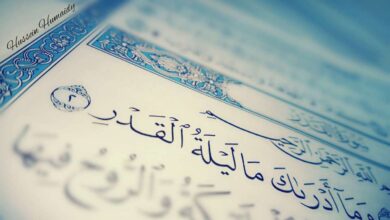 Hussein Humaidy
الرحمن الرحيم
وَمَآ أَدۡرَىٰكَ مَا لَيۡلَةُ ٱلۡقَدۡرِ ٢
وَٱلرُّوحُ فِيهَا